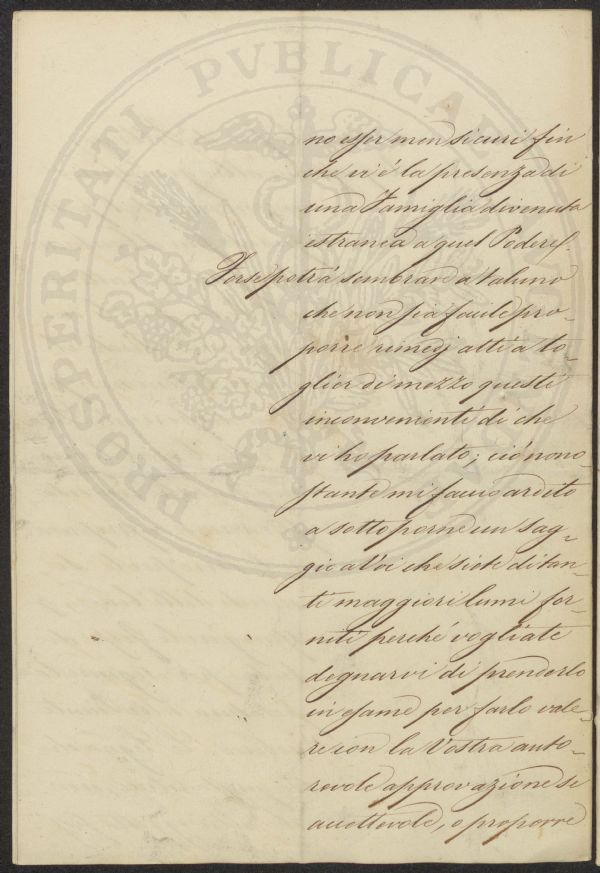 PROSPERITATI PVBLICAE
no esser men sicuri fin
che vi è la presenza di
una Famiglia divenuta
estranea a quel Podere.
Forse potrà sembrare a taluno
che non sia facile pro-
porre rimedj atti a to-
glier di mezzo questi
inconvenienti di che
vi ho parlato; ciò nono-
stante mi faccio ardito
a sottoporne un sag-
gio a Voi che siete di tan-
ti maggiori lumi for-
niti perché vogliate
degnarvi di prenderlo
in esame per farlo vale-
re con la Vostra auto-
revole approvazione se
accettevole, o proporre